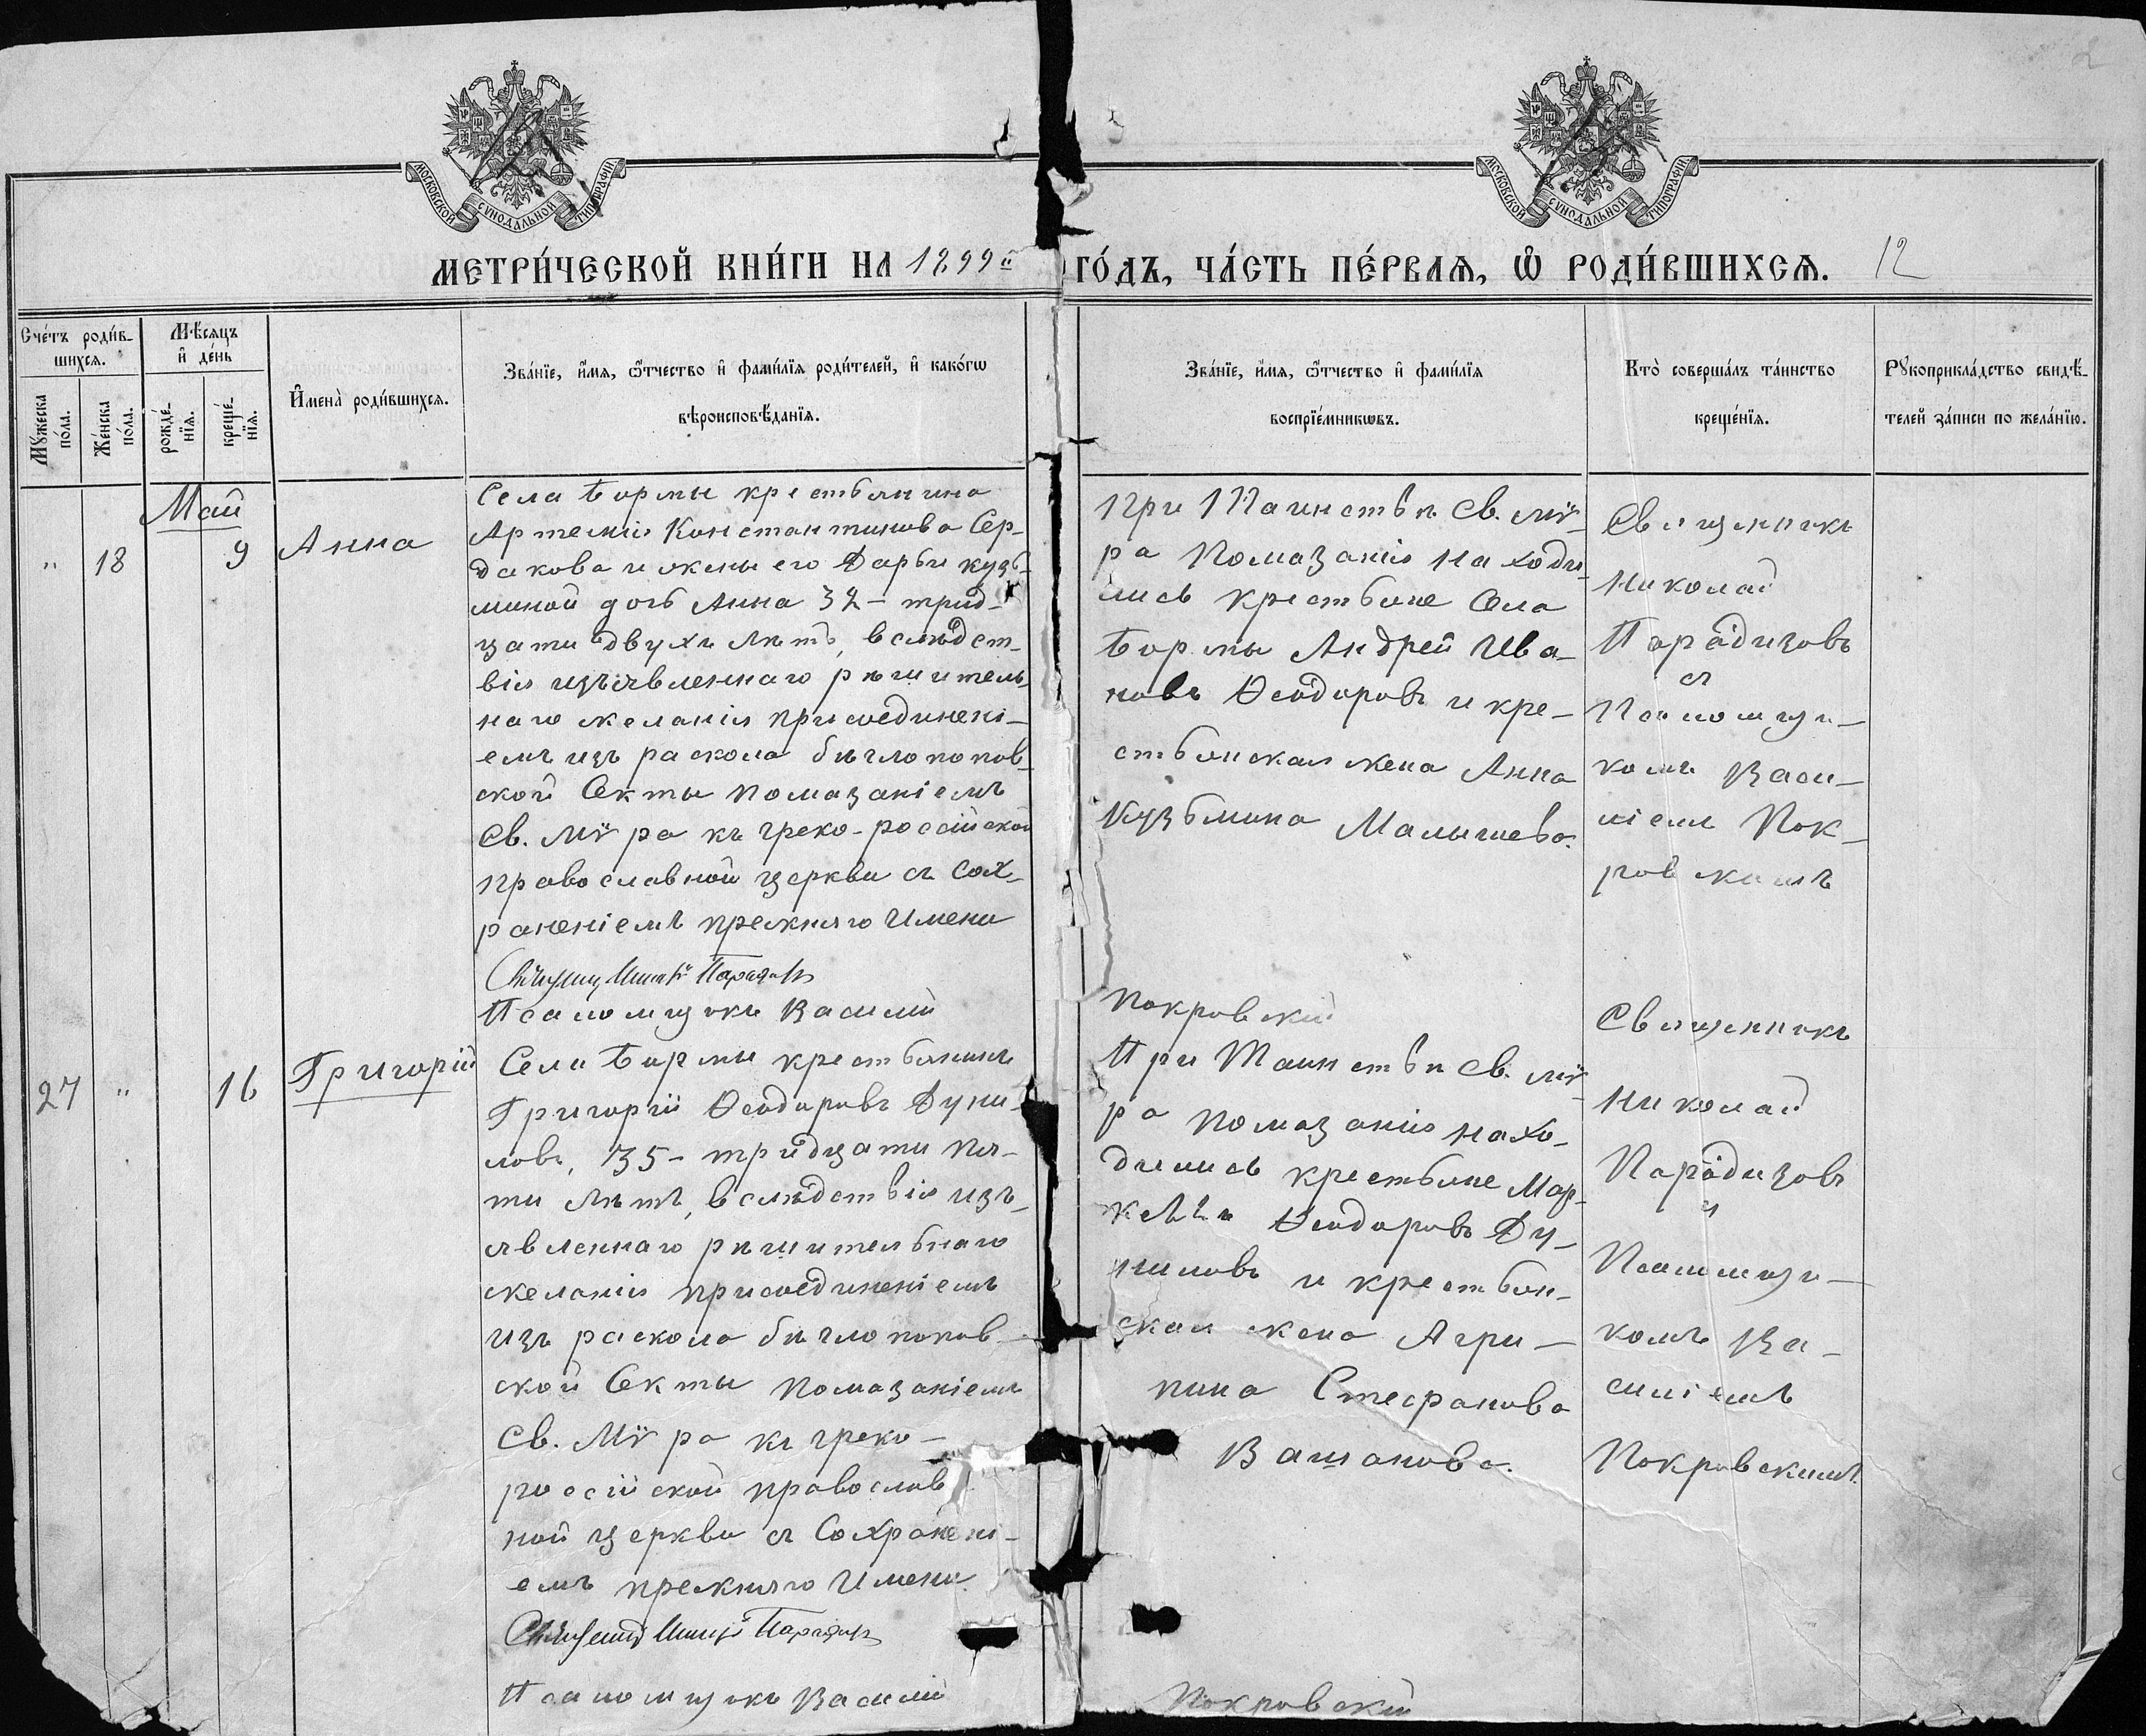 МОСКОВСКОЙ СѴНОДАЛЬНОЙ ТИПОГРАФІИ
МОСКОВСКОЙ СѴНОДАЛЬНОЙ ТИПОГРАФІИ
МЕТРИ́ЧЕСКОЙ КНИ́ГИ НА 1899й ГО́ДЪ, ЧА́СТЬ ПЕ́РВАЯ, Ѡ РОДИ́ВШИХСЯ. 12
Сче́тъ роди́в-
шихся.
Мꙋ́жеска по́ла.
Же́нска по́ла.
Мѣ́сяцъ
и де́нь
рожде́-
нїя.
креще́-
нїя.
Имена̀ роди́вшихся.
Зва́нїе, и́мя, ѻ́тчество и фами́лїя роди́телей, и како́гѡ
вѣроисповѣ́данїя.
Зва́нїе, и́мя, ѻ́тчество и фами́лїя
воспрїе́мникѡвъ.
Кто̀ соверша́лъ та́инство
креще́нїя.
Рꙋкоприкла́дство свидѣ́-
телей за́писи по жела́нїю.
Май
" 18 9 Анна
Села Бормы крестьянина
Артемія Константинова Сер-
дакова и жены его Дарьи Кузь-
миной дочь Анна 32 - трид-
цати двухъ лѣтъ, вслѣдст-
вія изъявленнаго рѣшитель-
наго желанія присоединені-
емъ изъ раскола бѣглопопов-
ской Секты помазаніемъ
Св. Мѵра къ греко-россійской
православной церкви съ сох-
раненіемъ прежняго Имени
Псаломщикъ Василій Покровскій
При Таинствѣ Св. Мѵ-
ра Помазанія находи-
лись крестьяне Села
Бормы Андрей Ива-
новъ Ѳеодоровъ и кре-
стьянская жена Анна
Кузьмина Малышева.
Священникъ
Николай
Парадизовъ
съ
Псаломщи-
комъ Васи-
ліемъ Пок-
ровскимъ
27 " 16 Григорій
Села Бормы крестьянинъ
Григорій Ѳеодоровъ Дуни-
ловъ, 35 - тридцати пя-
ти лѣтъ, вслѣдствія изъ-
явленнаго рѣшительнаго
желанія присоединеніемъ
изъ раскола бѣглопопов-
ской Секты помазаніемъ
Св. Мѵра къ греко-
россійской православ
ной церкви съ Сохранені-
емъ прежняго Имени
Псаломщикъ Василій Покровскій
При Таинствѣ Св. Мѵ-
ра помазанія нахо-
дились крестьяне Мар-
келъ Ѳеодоровъ Ду-
ниловъ и крестьян-
ская жена Агри-
пина Стефанова
Вашанова.
Священникъ
Николай
Парадизовъ
и
Псаломщи-
комъ Ва-
силіемъ
Покровскимъ.